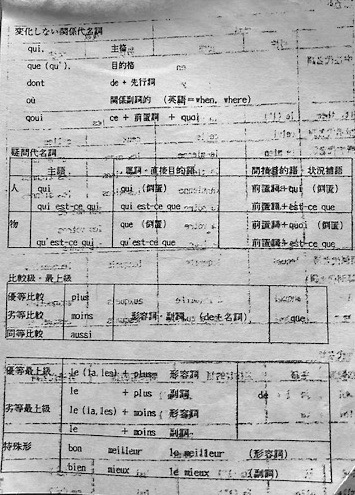 変化しない関係代名詞
qui. 主格
que (qu'). 目的格
dont de + 先行詞
où 関係副詞的 (英語=when, where)
qoui ce + 前置詞 + quoi
疑問代名詞
主語 属詞・直接目的語 間接目的語・状況補語
人 qui qui (倒置) 前置詞+qui (倒置)
qui est-ce qui qui est-ce que 前置詞+est-ce que
物 que (倒置) 前置詞+quoi (倒置)
qu'est-ce qui qu'est-ce que 前置詞+est-ce que
比較級・最上級
優等比較 plus
劣等比較 moins 形容詞・副詞 (de+名詞) que
同等比較 aussi
優等最上級 le (la, les) + plus 形容詞
le + plus 副詞 de
劣等最上級 le (la, les) + moins 形容詞
le + moins 副詞
特殊形 bon meilleur le meilleur (形容詞)
bien mieux le mieux (副詞)